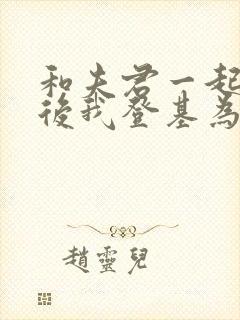 和夫君一起
後我登基為
趙靈兒